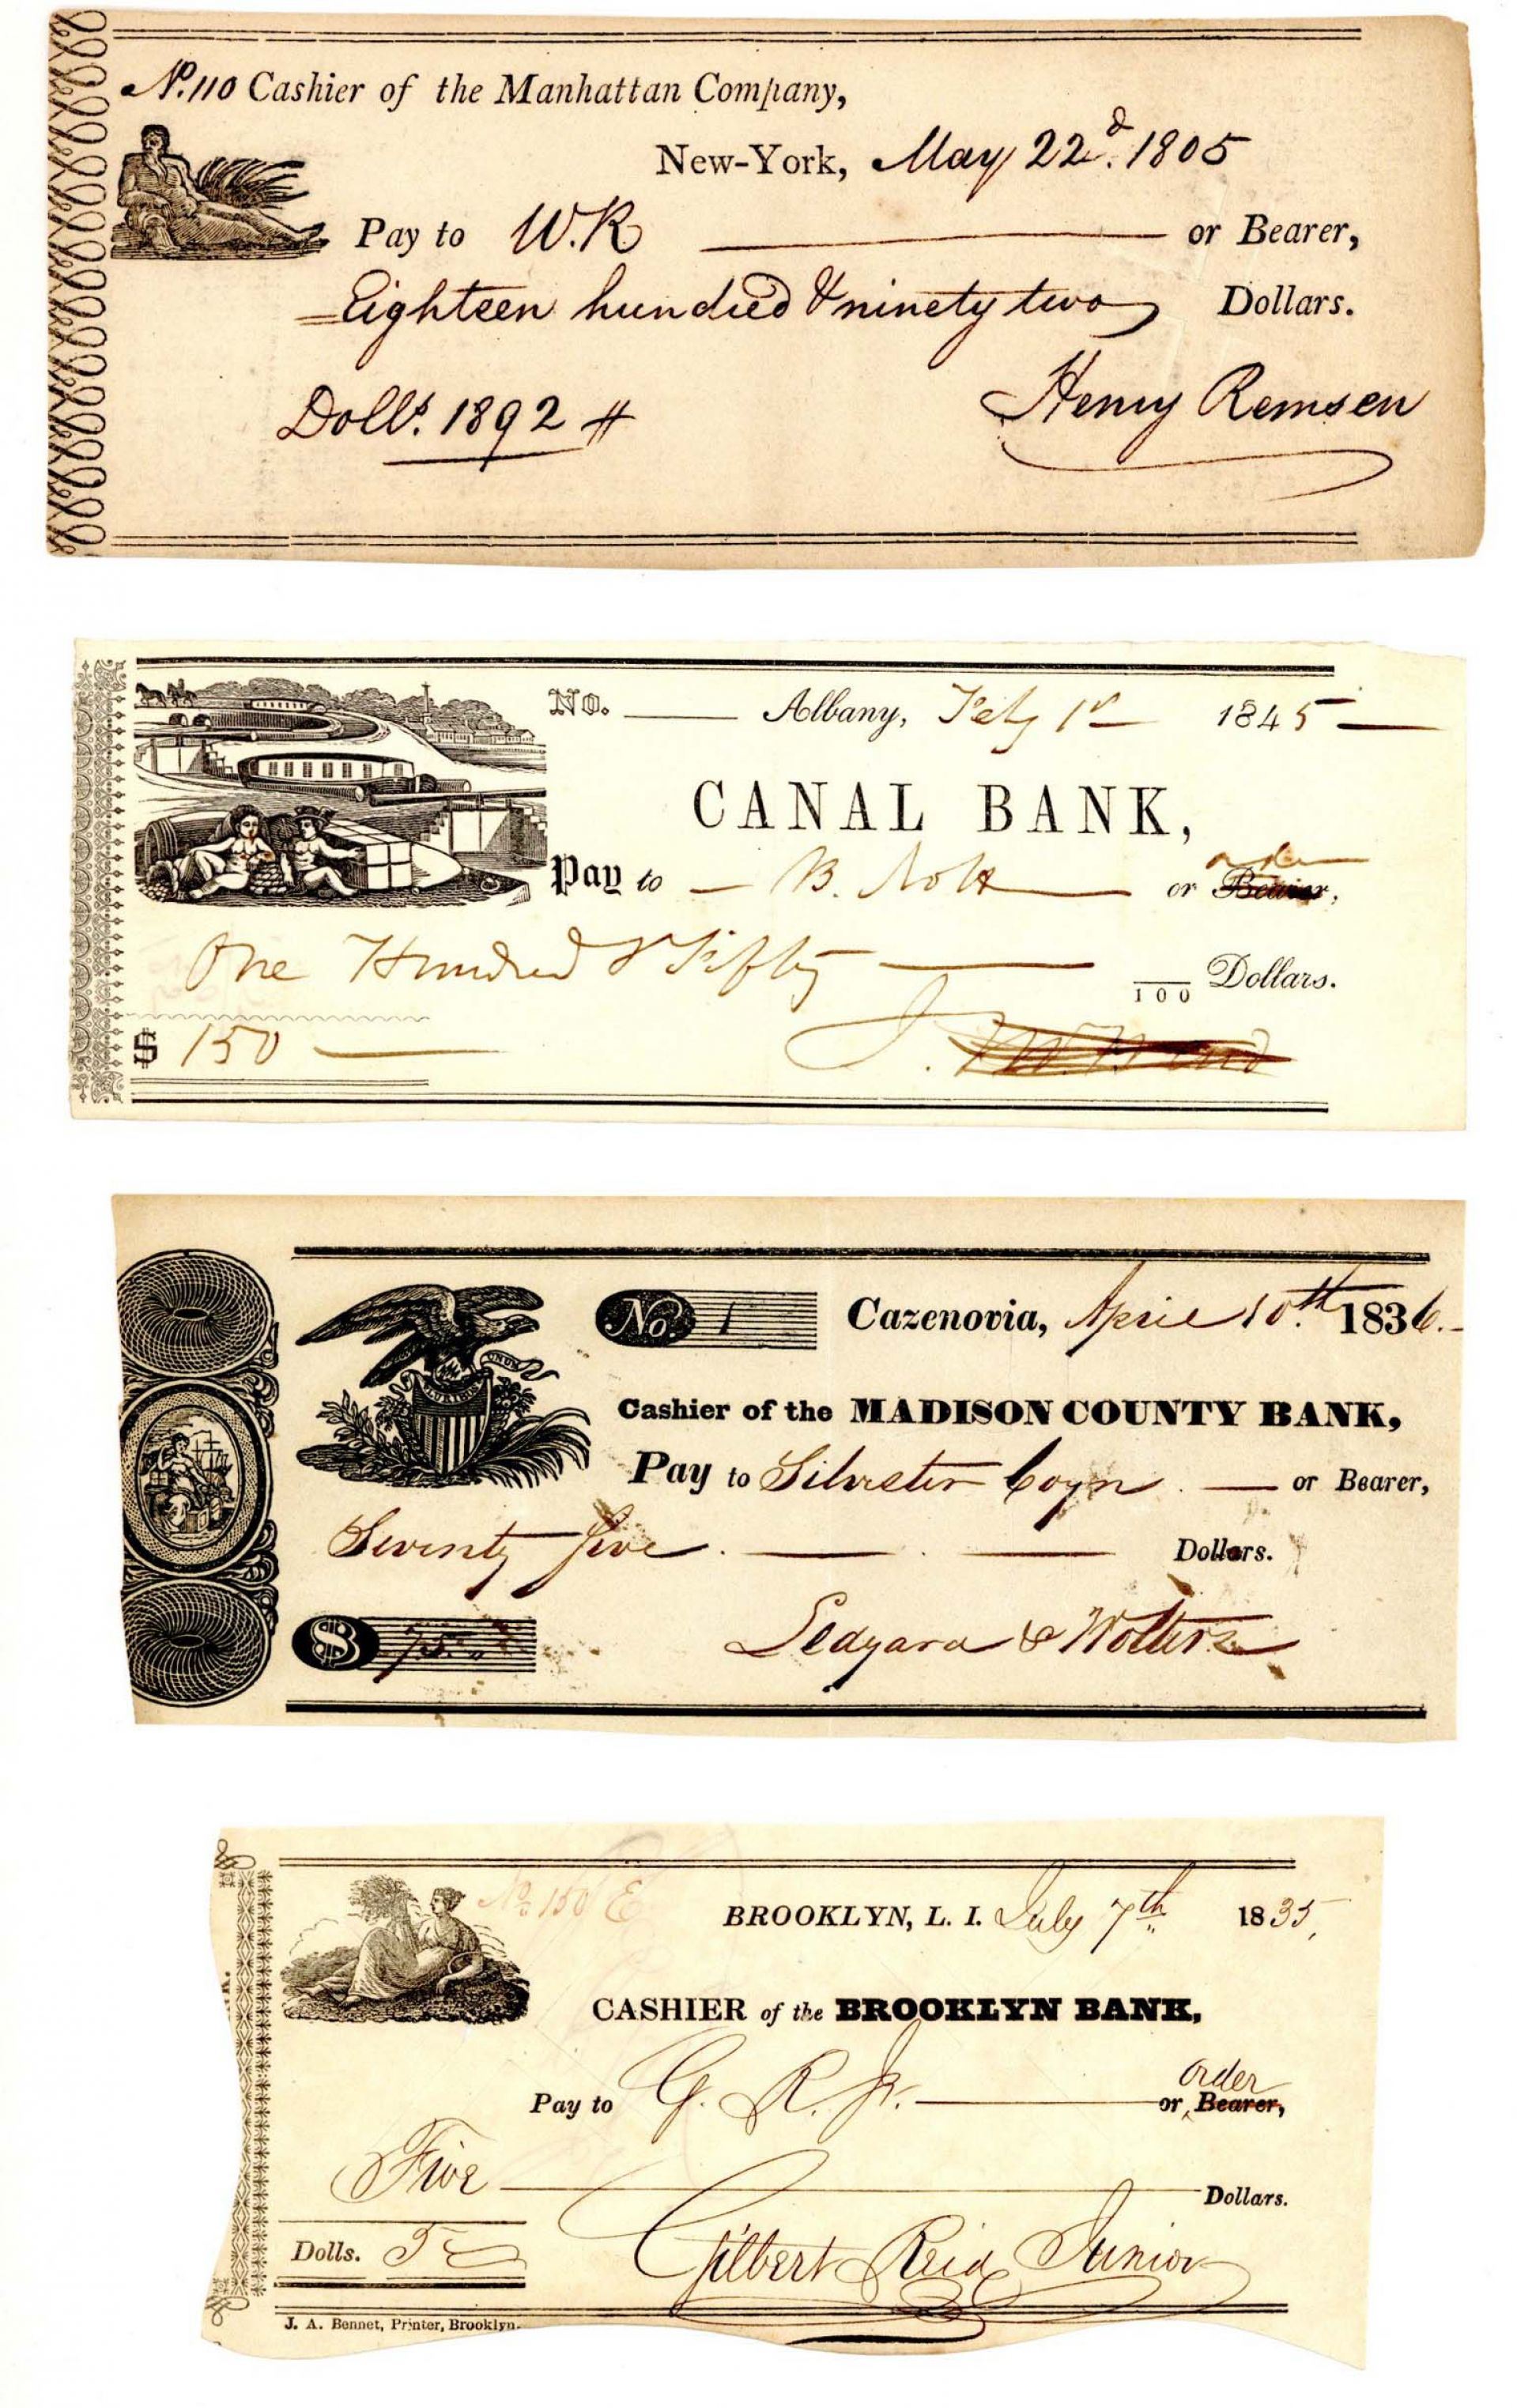 No. 110 Cashier of the Manhattan Company,
New-York, May 22d. 1805
Pay to W.R or Bearer,
Eighteen hundred & ninety two Dollars.
Dolls. 1892 #
Henry Remsen
No. Albany, Feby 1st 1845
CANAL BANK,
order
Pay to B. Nott or Bearer,
One Hundred & Fifty 100 Dollars.
$ 150
J.
No. 1 Cazenovia, April 10th. 1836.
UNUM
Cashier of the MADISON COUNTY BANK,
Pay to Silvester Coyn or Bearer,
Seventy five Dollars.
$ 75
Ledyard & Wolters
No. 150 E
BROOKLYN, L. I. July 7th 1835,
CASHIER of the BROOKLYN BANK,
order
Pay to G. R. Jr. or Bearer,
Five Dollars.
Dolls. 5
Gilbert Reid Junior
J. A. Bennet, Printer, Brooklyn.